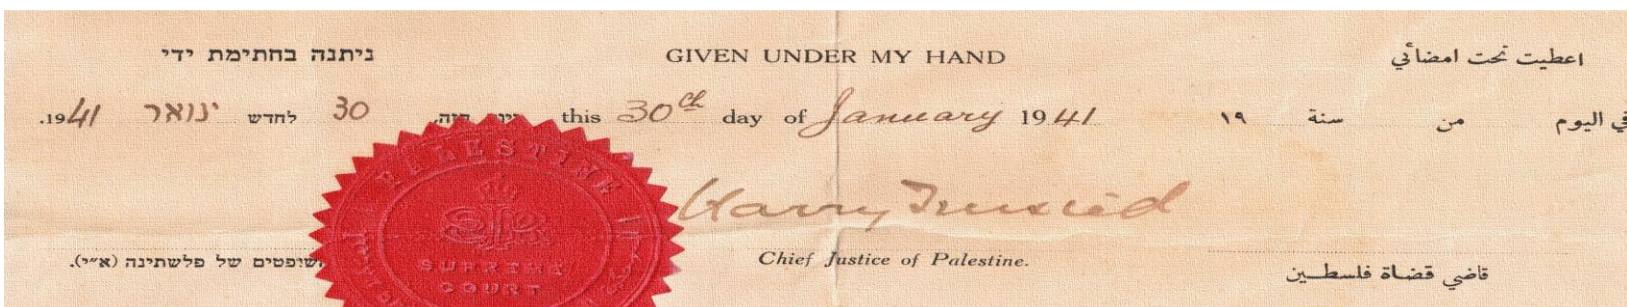 ניתנה בחתימת ידי
GIVEN UNDER MY HAND
اعطيت تحت امضائي
30 לחדש ינואר 1941.
this 30th day of January 1941
في اليوم من سنة ١٩
Harry Trusted
PALESTINE
SUPREME
COURT
של פלשתינה (א״י).
Chief Justice of Palestine.
قاضي قضاة فلسطين